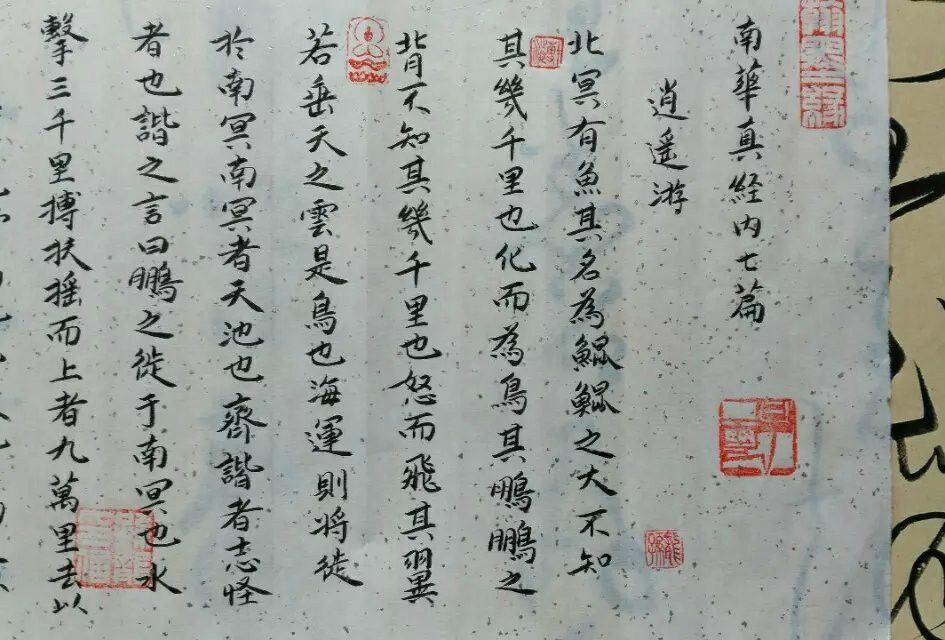 南華真経内七篇
逍遥游
北冥有魚其名為鯤鯤之大不知
其幾千里也化而為鳥其鵬鵬之
背不知其幾千里也怒而飛其翼
若垂天之雲是鳥也海運則将徙
於南冥南冥者天池也齊諧者志怪
者也諧之言曰鵬之徙于南冥也水
擊三千里搏扶摇而上者九萬里去以